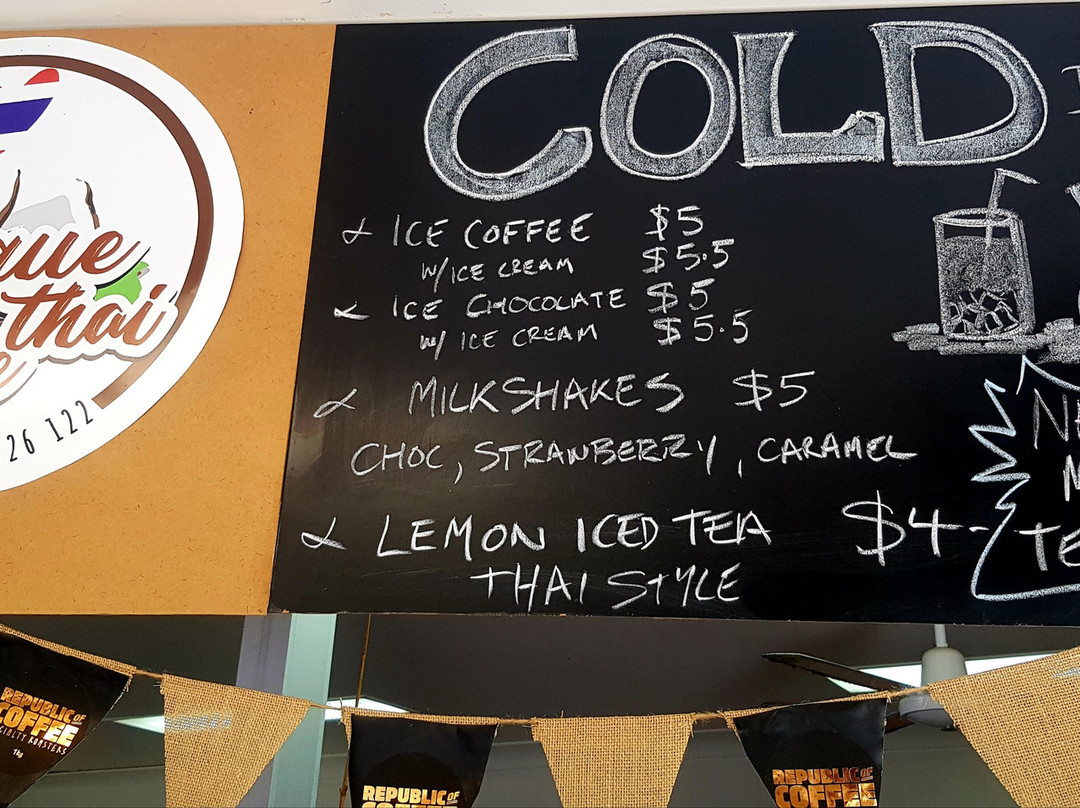 COLD
ICE COFFEE $5
W/ICE CREAM $5.5
ICE CHOCOLATE $5
W/ ICE CREAM $5.5
MILKSHAKES $5
CHOC, STRAWBERRY, CARAMEL
LEMON ICED TEA $4-
THAI STYLE
thai
26 122
REPUBLIC OF
COFFEE
1kg
REPUBLIC OF
COFFEE
REPUBLIC OF
COFFEE